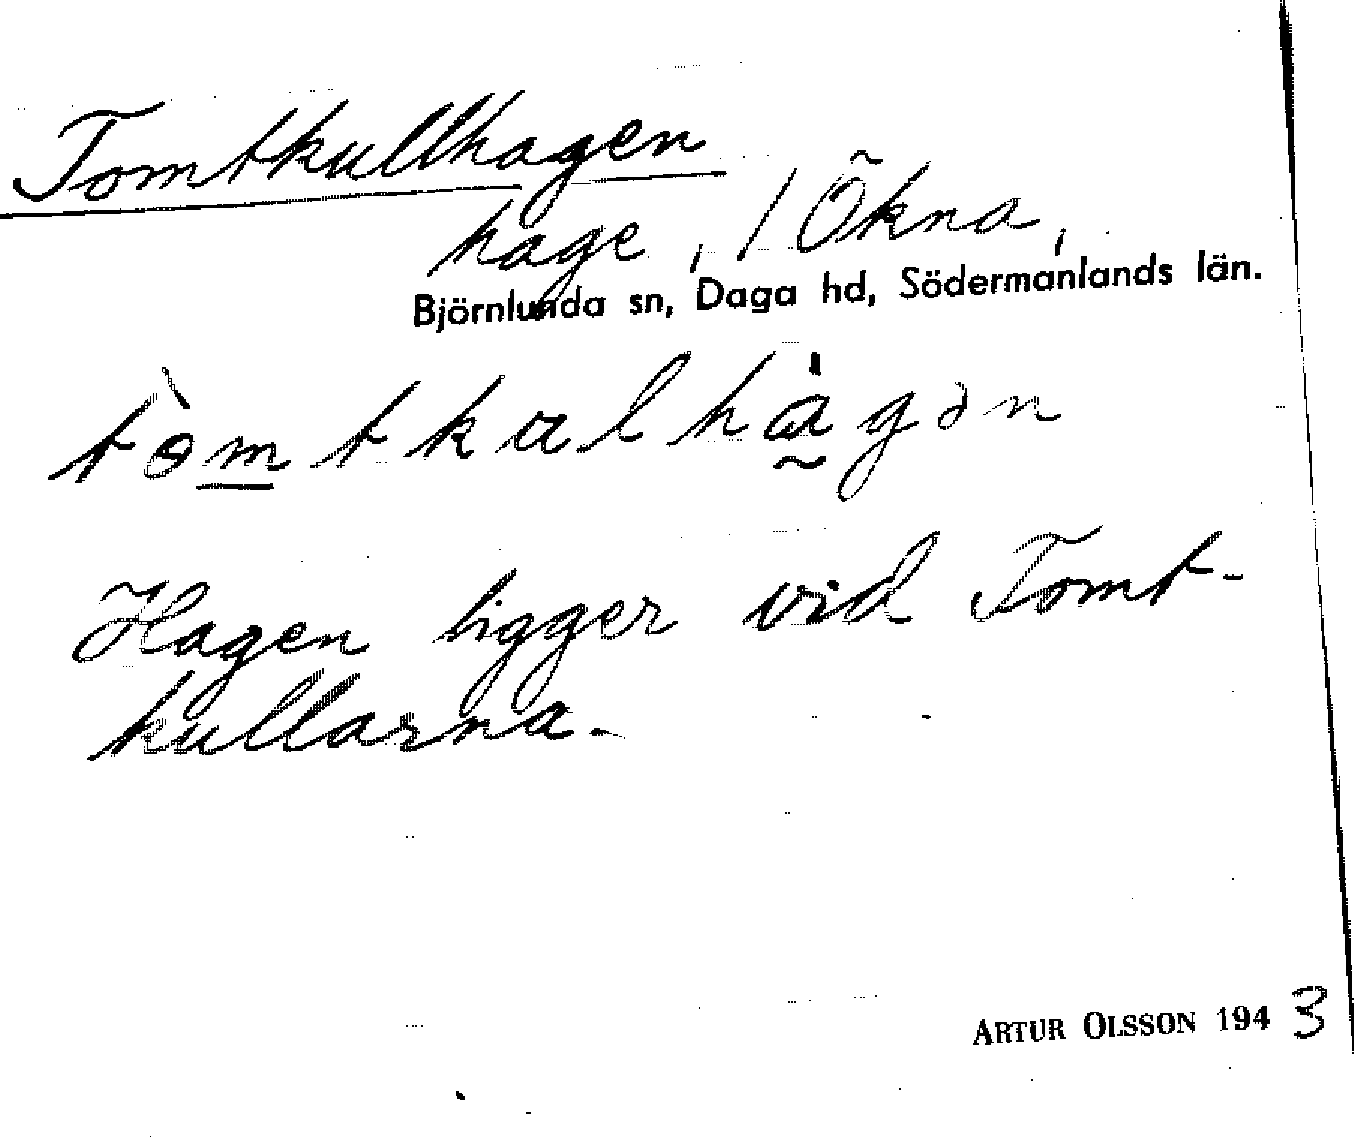 Tomtkullhagen
hage, / Ökna,
Björnlunda sn, Daga hd, Södermanlands län.
tòmtkulhàgən
Hagen ligger vid Tomt-
kullarna.
ARTUR OLSSON 1943